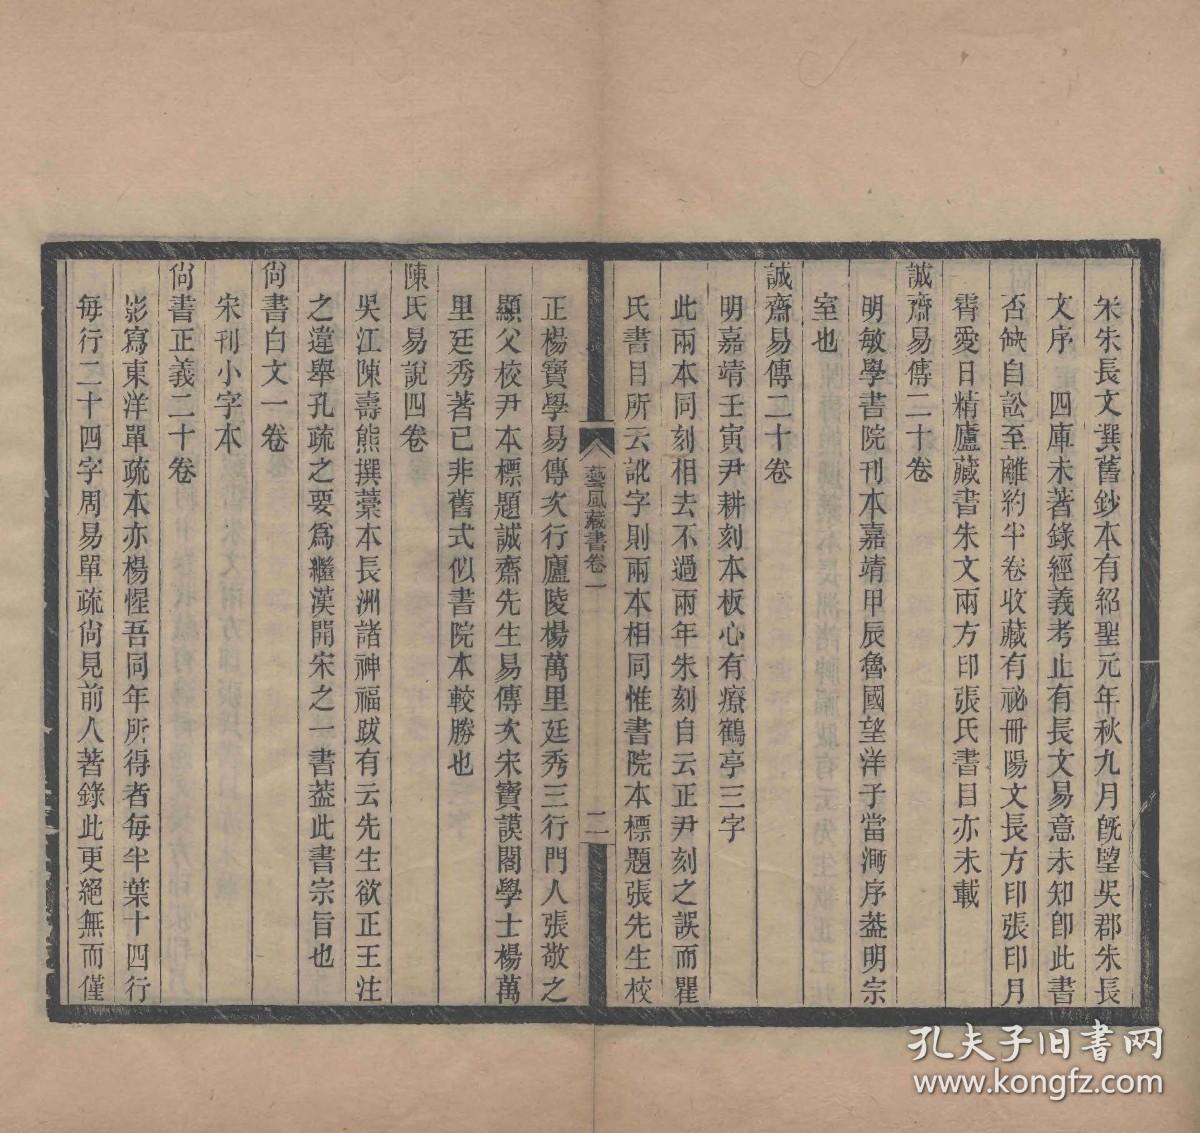 宋朱長文撰舊鈔本有紹聖元年秋九月旣望吳郡朱長
文序　四庫未著錄經義考止有長文易意未知卽此書
否缺自訟至離約半卷收藏有祕冊陽文長方印張印月
霄愛日精廬藏書朱文兩方印張氏書目亦未載
誠齋易傳二十卷
明敏學書院刊本嘉靖甲辰魯國望洋子當㴲序葢明宗
室也
誠齋易傳二十卷
明嘉靖壬寅尹耕刻本板心有療鶴亭三字
此兩本同刻相去不過兩年朱刻自云正尹刻之誤而瞿
氏書目所云訛字則兩本相同惟書院本標題張先生校
藝風藏書卷一
二
正楊寶學易傳次行廬陵楊萬里廷秀三行門人張敬之
顯父校尹本標題誠齋先生易傳次宋寶謨閣學士楊萬
里廷秀著已非舊式似書院本較勝也
陳氏易說四卷
吳江陳壽熊撰藁本長洲諸神福跋有云先生欲正王注
之違舉孔疏之要爲繼漢開宋之一書葢此書宗旨也
尙書白文一卷
宋刊小字本
尙書正義二十卷
影寫東洋單疏本亦楊惺吾同年所得者每半葉十四行
每行二十四字周易單疏尙見前人著錄此更絕無而僅
孔夫子旧书网
www.kongfz.com